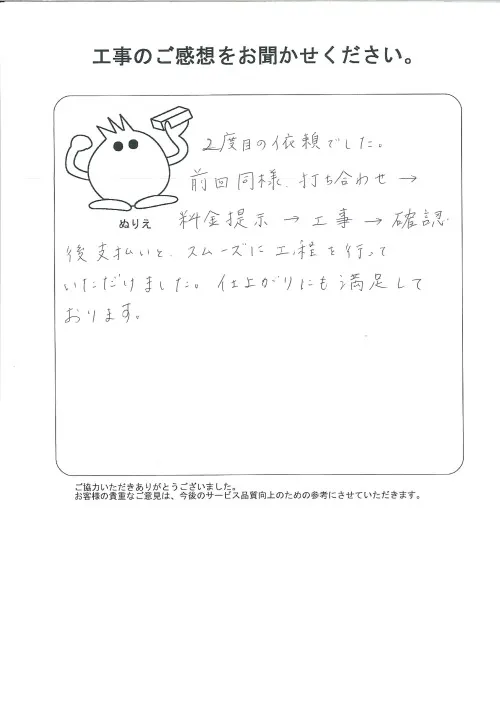 工事のご感想をお聞かせください。
2度目の依頼でした。
前回同様、打ち合わせ →
ぬりえ
料金提示 → 工事 → 確認
後支払いと、スムーズに工程を行って
いただけました。仕上がりにも満足して
おります。
ご協力いただきありがとうございました。
お客様の貴重なご意見は、今後のサービス品質向上のための参考にさせていただきます。